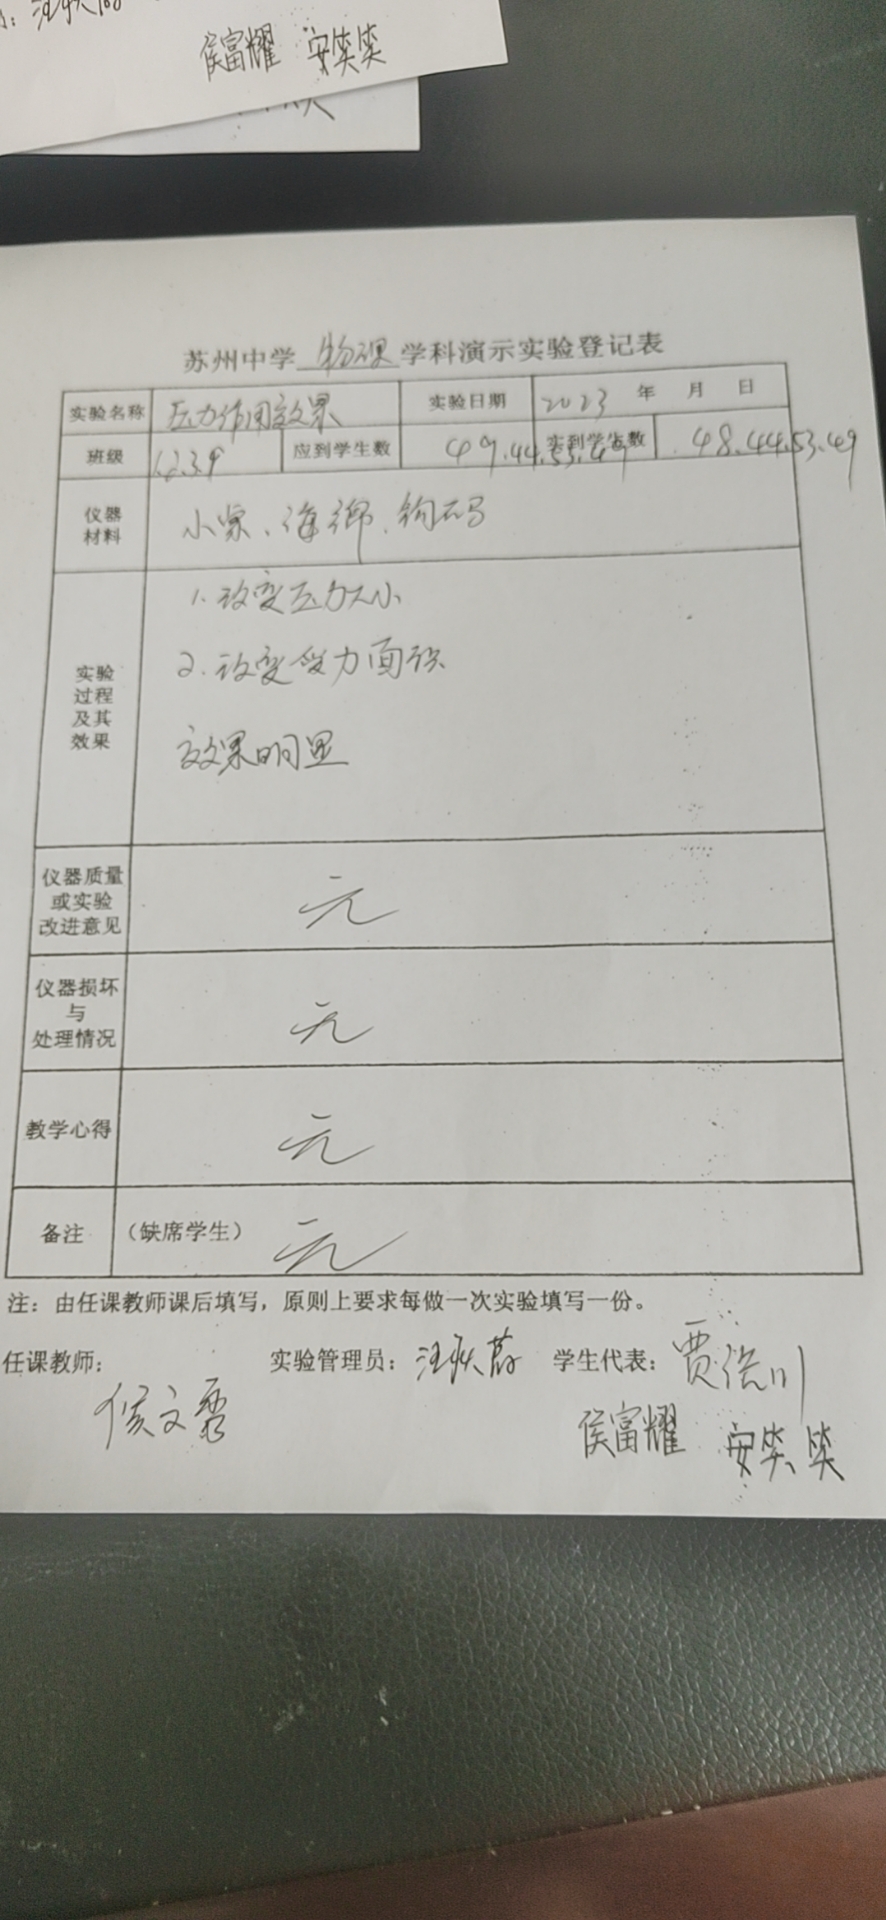 侯富耀 安奕奕
苏州中学 物理 学科演示实验登记表
实验名称 压力作用效果 实验日期 2023 年 月 日
班级 1.2.3.9 应到学生数 49.44.53.49 实到学生数 48.44.53.49
仪器材料 小桌、海绵、钩码
实验过程及其效果
1.改变压力大小
2.改变受力面积
效果明显
仪器质量或实验改进意见 无
仪器损坏与处理情况 无
教学心得 无
备注 (缺席学生) 无
注:由任课教师课后填写,原则上要求每做一次实验填写一份。
任课教师: 实验管理员: 学生代表:
侯富耀 安奕奕